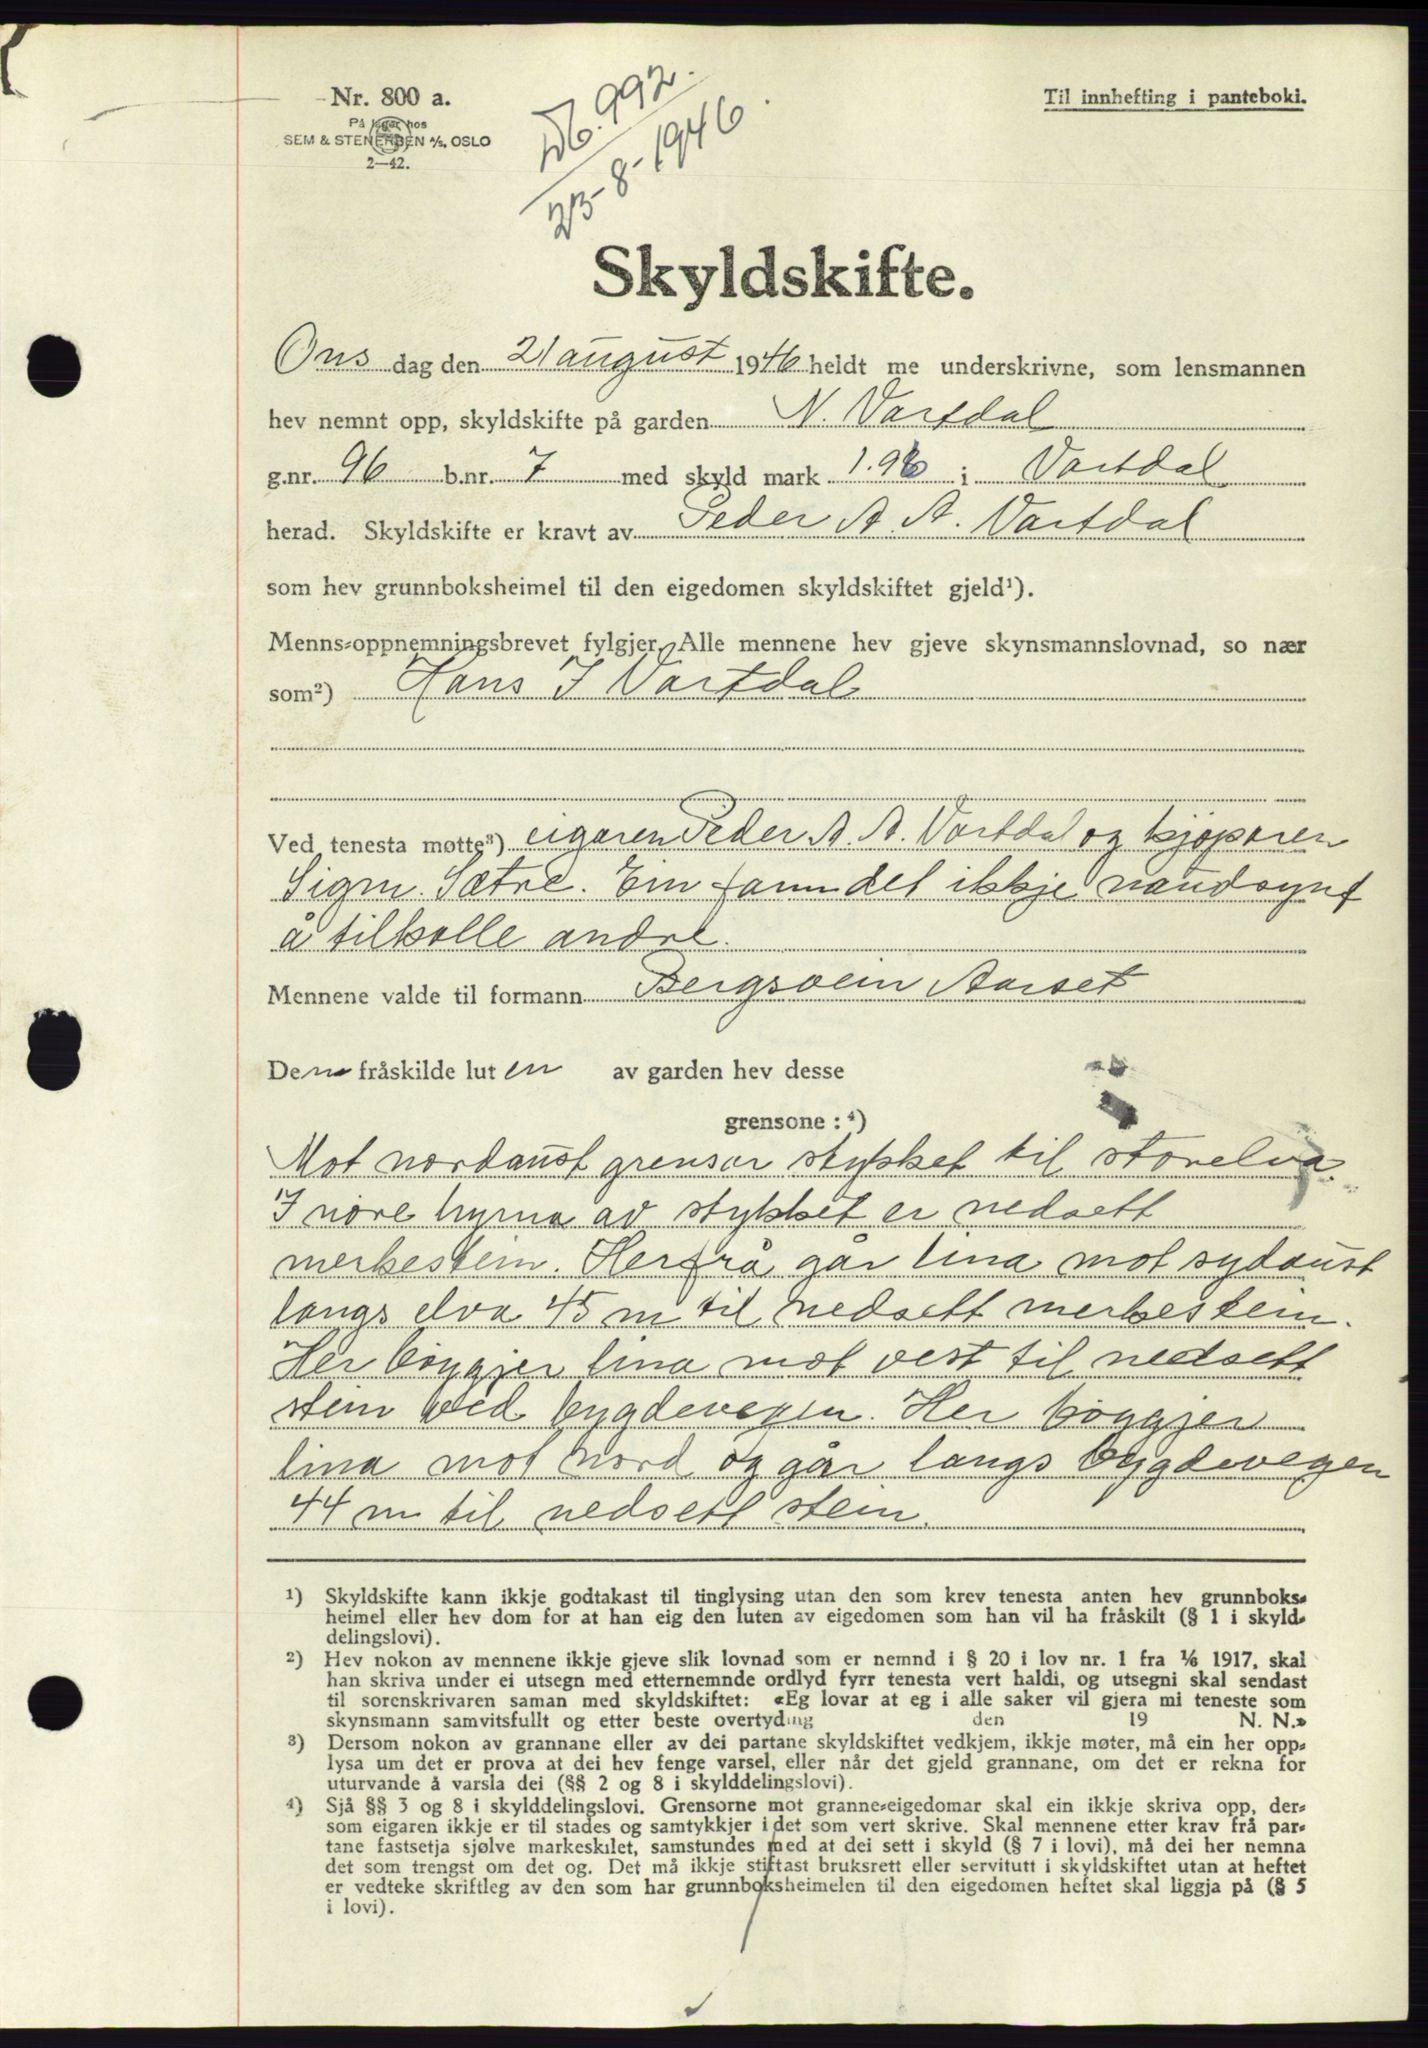 Nr. 800 a.
På lager hos
SEM & STENERSEN A/S, OSLO
2—42.
Db. 992.
23-8-1946.
Til innhefting i panteboki.
Skyldskifte.
Ons dag den 21 august 1946 heldt me underskrivne, som lensmannen
hev nemnt opp, skyldskifte på garden N. Vartdal
g.nr. 96 b.nr. 7 med skyld mark 1.96 i Vartdal
herad. Skyldskifte er kravt av Peder A. A. Vartdal
som hev grunnboksheimel til den eigedomen skyldskiftet gjeld¹).
Menns-oppnemningsbrevet fylgjer. Alle mennene hev gjeve skynsmannslovnad, so nær
som²) Hans I Vartdal
Ved tenesta møtte³) eigaren Peder A. A. Vartdal og kjøparen
Sigm. Sætre. Ein fann det ikkje naudsynt
å tilkalle andre.
Mennene valde til formann Bergsvein Aarset
Den fråskilde luten av garden hev desse
grensone : ⁴)
Mot nordaust grensar stykket til storelva.
I nore hyrna av stykket er nedsett
merkestein. Herfrå går lina mot sydaust
langs elva 45 m til nedsett merkestein.
Her bøygjer lina mot vest til nedsett
stein ved bygdevegen. Her bøygjer
lina mot nord og går langs bygdevegen
44 m til nedsett stein.
¹) Skyldskifte kann ikkje godtakast til tinglysing utan den som krev tenesta anten hev grunnboks-
heimel eller hev dom for at han eig den luten av eigedomen som han vil ha fråskilt (§ 1 i skyld-
delingslovi).
²) Hev nokon av mennene ikkje gjeve slik lovnad som er nemnd i § 20 i lov nr. 1 fra 1/6 1917, skal
han skriva under ei utsegn med etternemnde ordlyd fyrr tenesta vert haldi, og utsegni skal sendast
til sorenskrivaren saman med skyldskiftet: «Eg lovar at eg i alle saker vil gjera mi teneste som
skynsmann samvitsfullt og etter beste overtyding den 19 N. N.»
³) Dersom nokon av grannane eller av dei partane skyldskiftet vedkjem, ikkje møter, må ein her opp-
lysa um det er prova at dei hev fenge varsel, eller når det gjeld grannane, om det er rekna for
uturvande å varsla dei (§§ 2 og 8 i skylddelingslovi).
⁴) Sjå §§ 3 og 8 i skylddelingslovi. Grensorne mot granne-eigedomar skal ein ikkje skriva opp, der-
som eigaren ikkje er til stades og samtykkjer i det som vert skrive. Skal mennene etter krav frå par-
tane fastsetja sjølve markeskilet, samstundes med at dei sett i skyld (§ 7 i lovi), må dei her nemna
det som trengst om det og. Det må ikkje stiftast bruksrett eller servitutt i skyldskiftet utan at heftet
er vedteke skriftleg av den som har grunnboksheimelen til den eigedomen heftet skal liggja på (§ 5
i lovi).